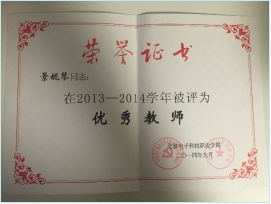 荣誉证书
景妮琴同志：
在2013—2014学年被评为
优秀教师
北京电子科技职业学院
二〇一四年九月